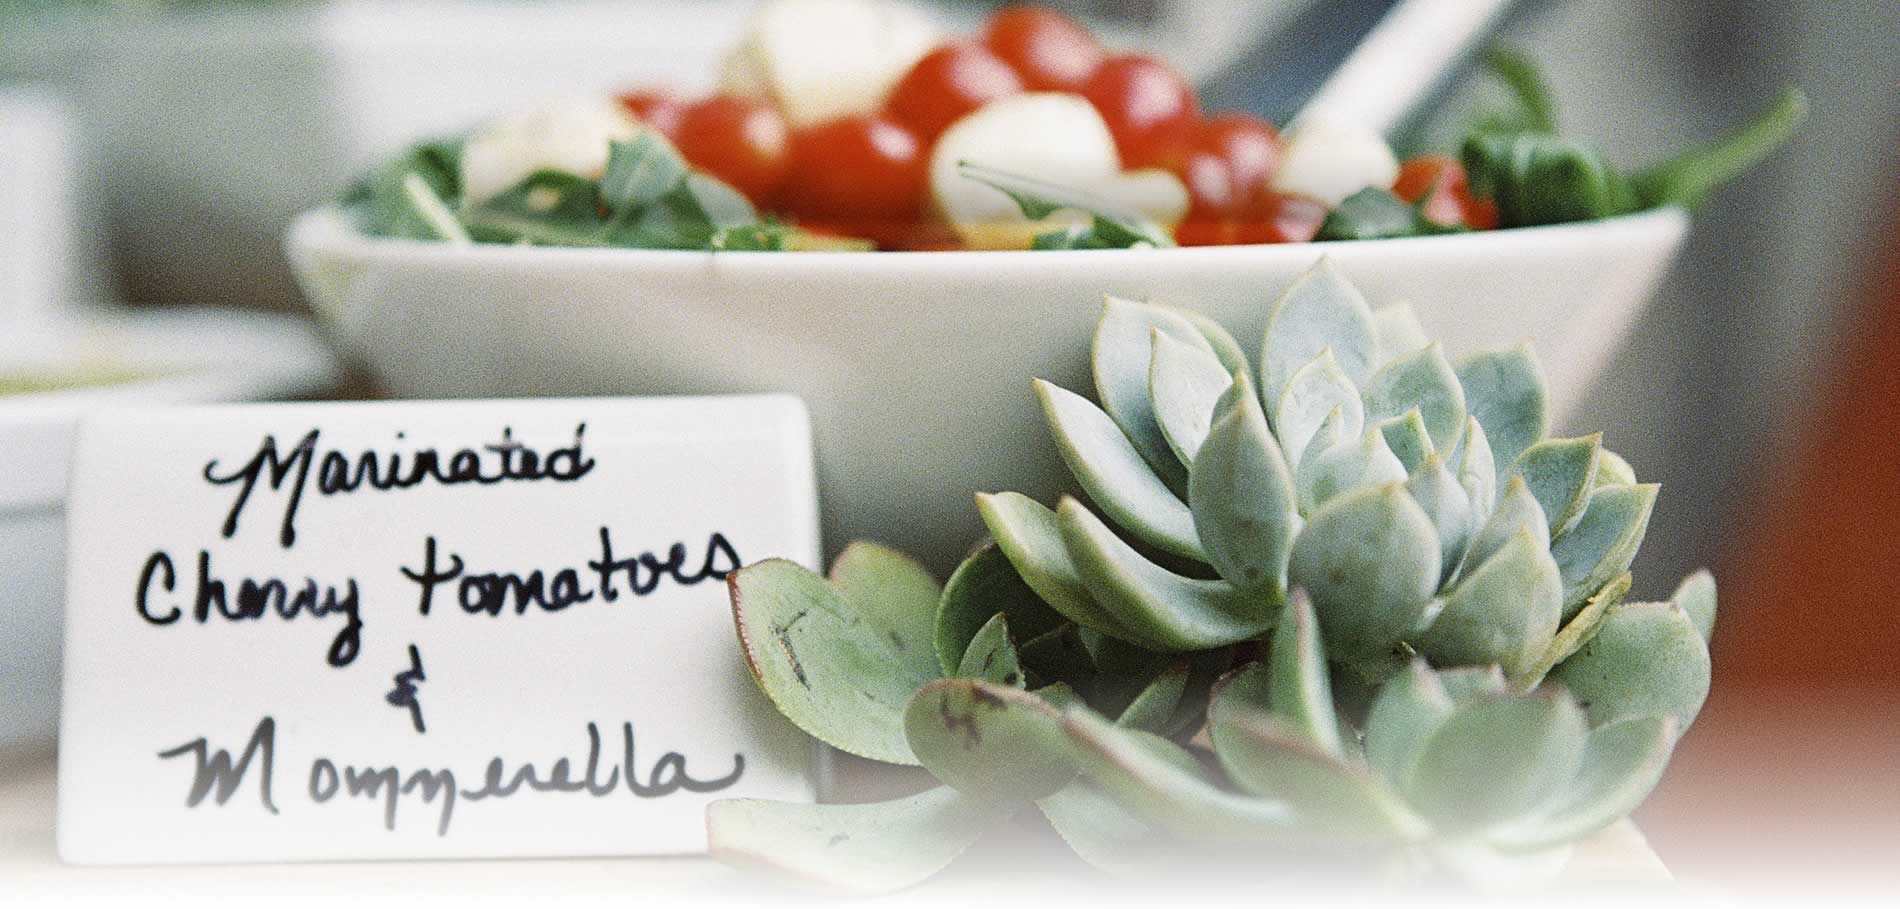 Marinated
Cherry tomatoes
&
Mozzerella